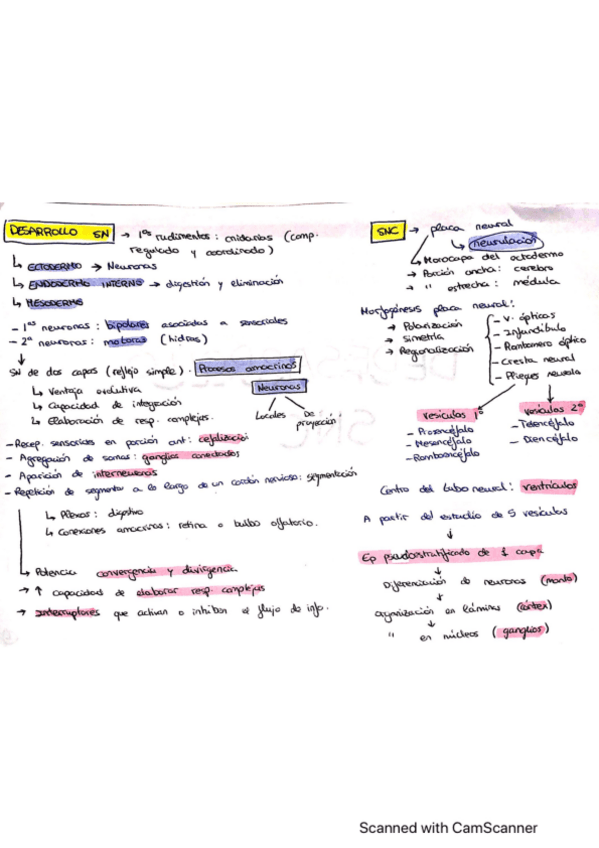 DESARROLLO SN → 1os rudimentos: cnidarios (comp.
regulado y coordinado)
↳ ECTODERMO → Neuronas
↳ ENDODERMO INTERNO → digestión y eliminación
↳ MESODERMO
- 1as neuronas: bipolares asociadas a sensoriales
- 2a neuronas: motoras (hidras)
↓
SN de dos capas (reflejo simple). Procesos amacrinos
↳ Ventaja evolutiva
↳ Capacidad de integración
↳ Elaboración de resp. complejas.
Neuronas
Locales
De proyección
- Recep. sensoriales en porción ant: cefalización
- Agregación de somas: ganglios conectados
- Aparición de interneuronas
- Repetición de segmentos a lo largo de un cordón nervioso: segmentación
↳ Plexos: digestivo
↳ Conexiones amacrinas: retina o bulbo olfatorio.
→ Potencia convergencia y divergencia
→ ↑ capacidad de elaborar resp. complejas
→ Interruptores que activan o inhiben el flujo de info.
SNC → placa neural
↳ neurulación
↳ Monocapa del ectodermo
→ Porción ancha: cerebro
→ " estrecha: médula
Morfogénesis placa neural:
→ Polarización
→ Simetría
→ Regionalización
- V. ópticas
- Infundíbulo
- Rombómero óptico
- Cresta neural
- Pliegues neurales
Vesículas 1a
- Prosencéfalo
- Mesencéfalo
- Romboencéfalo
Vesículas 2a
- Telencéfalo
- Diencéfalo
Centro del tubo neural: ventrículos
A partir del estudio de 5 vesículas
Ep pseudoestratificado de 1 capa
↓
Diferenciación de neuronas (manto)
↓
organización en láminas (córtex)
↓
" en núcleos (ganglios)
Scanned with CamScanner